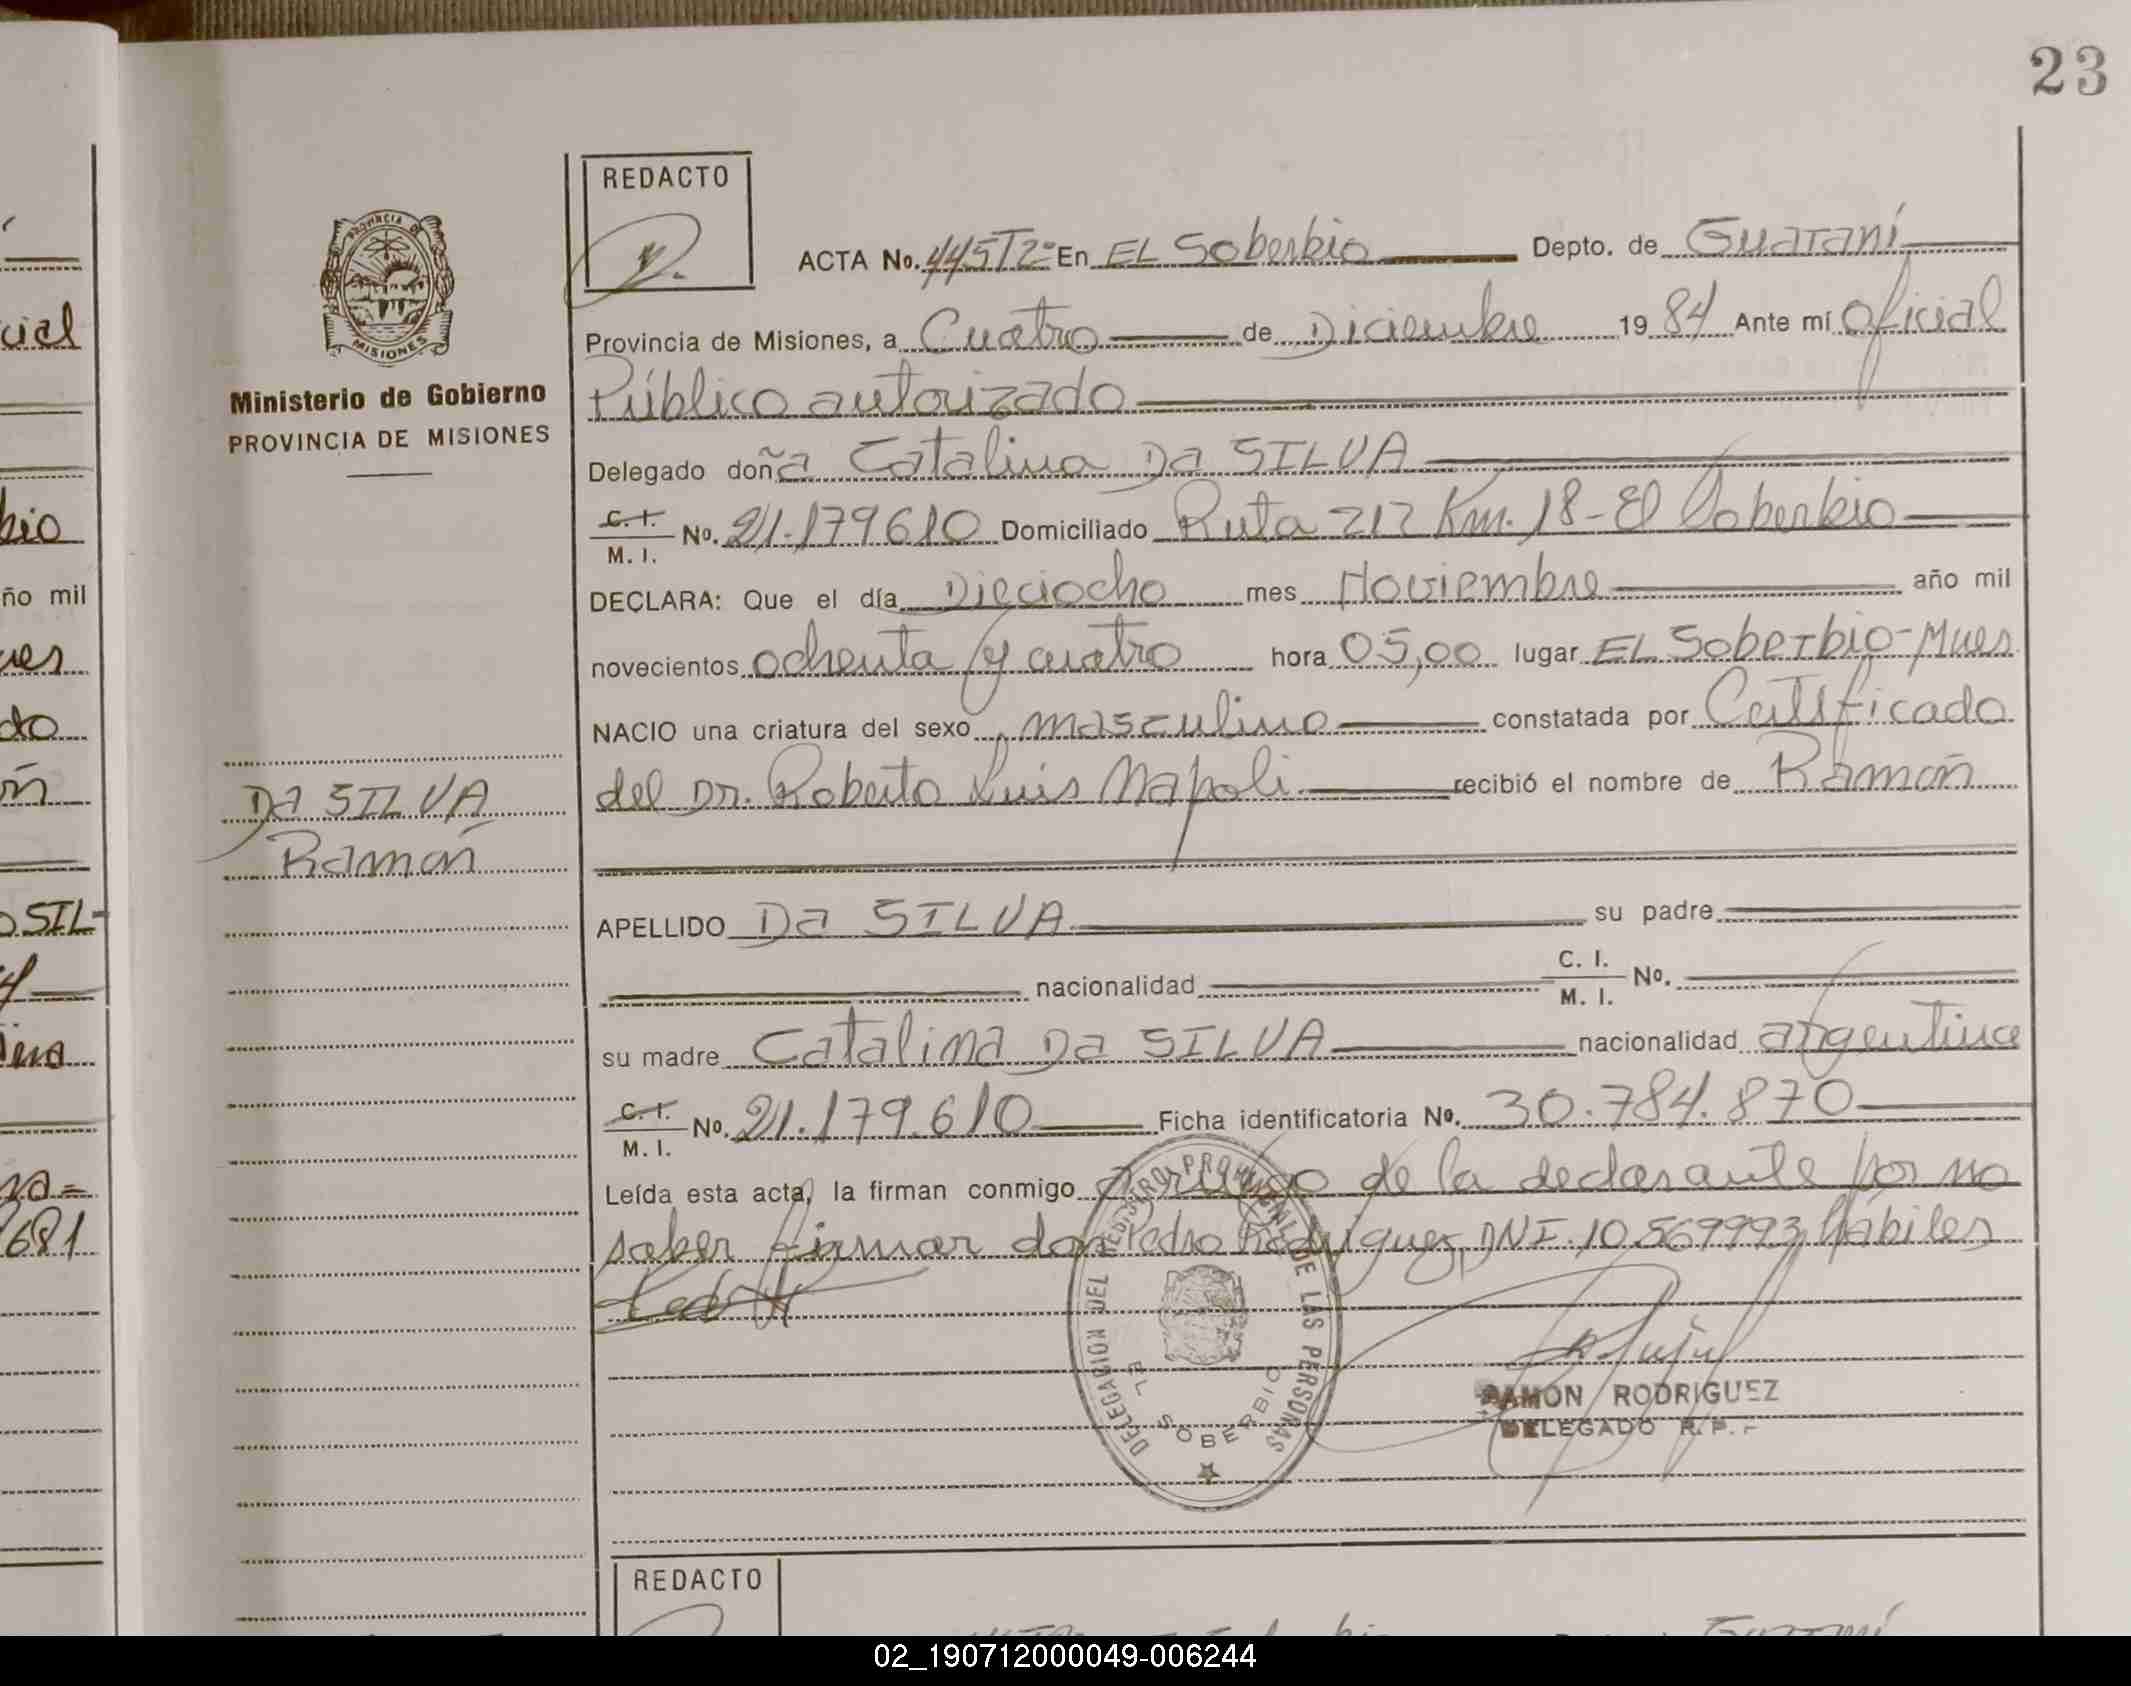 23
REDACTO
PROVINCIA DE
MISIONES
Ministerio de Gobierno
PROVINCIA DE MISIONES
ACTA No. 445T2º En EL Soberbio Depto. de Guaraní
Provincia de Misiones, a Cuatro de Diciembre 1984 Ante mí Oficial
Público autorizado
Delegado doña Catalina Da SILVA
C. I. / M. I. No. 21.179610 Domiciliado Ruta 212 Km. 18-El Soberbio
DECLARA: Que el día Dieciocho mes Noviembre año mil
novecientos ochenta y cuatro hora 05,00 lugar EL Soberbio-Mnes
NACIO una criatura del sexo masculino constatada por Certificado
del Dr. Roberto Luis Napoli recibió el nombre de Ramón
Da SILVA
Ramón
APELLIDO Da SILVA su padre
nacionalidad C. I. / M. I. No.
su madre Catalina Da SILVA nacionalidad argentina
C. I. / M. I. No. 21.179.610 Ficha identificatoria No. 30.784.870
Leída esta acta, la firman conmigo a ruego de la declarante por no
saber firmar don Pedro Rodríguez, DNI. 10.569993 hábiles
DELEGACION DEL REGISTRO PROVINCIAL DE LAS PERSONAS
EL SOBERBIO
RAMON RODRIGUEZ
DELEGADO R. P.
REDACTO
cial
bio
ño mil
do
SIL-
681
02_190712000049-006244